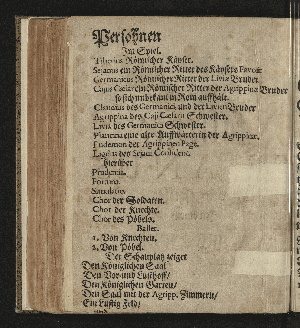 Persohnen
Im Spiel.
Tiberius Römischer Käyser.
Sejanus ein Römischer Ritter des Käysers Favorit
Germanicus Römischer Ritter der Livia Bruder
Cajus Cæsar ein Römischer Ritter der Agrippina Bruder
so sich unbekant in Rom auffhält.
des Germanici und der Livien Bruder
Agrippina des Caji Cæsaris Schwester.
Livia des Germanici Schwester.
eine alte Auffwärterin der Agrippinæ.
Eudemon der Agrippinen Page.
des Sejani
hierüber
Prudentia.
Fortuna.
Simulatio
Chor der Soldaten.
Chor der Knechte.
Chor des Pöbels.
Ballet.
1. Von Knechten.
2. Von Pöbel.
Der Schauplatz zeiget
Den Königlichen Saal
Den Vor-und Lusthoff/
Den Königlichen Garten/
Den Saal mit der Agripp. Zimmern/
Ein Lustig Feld/